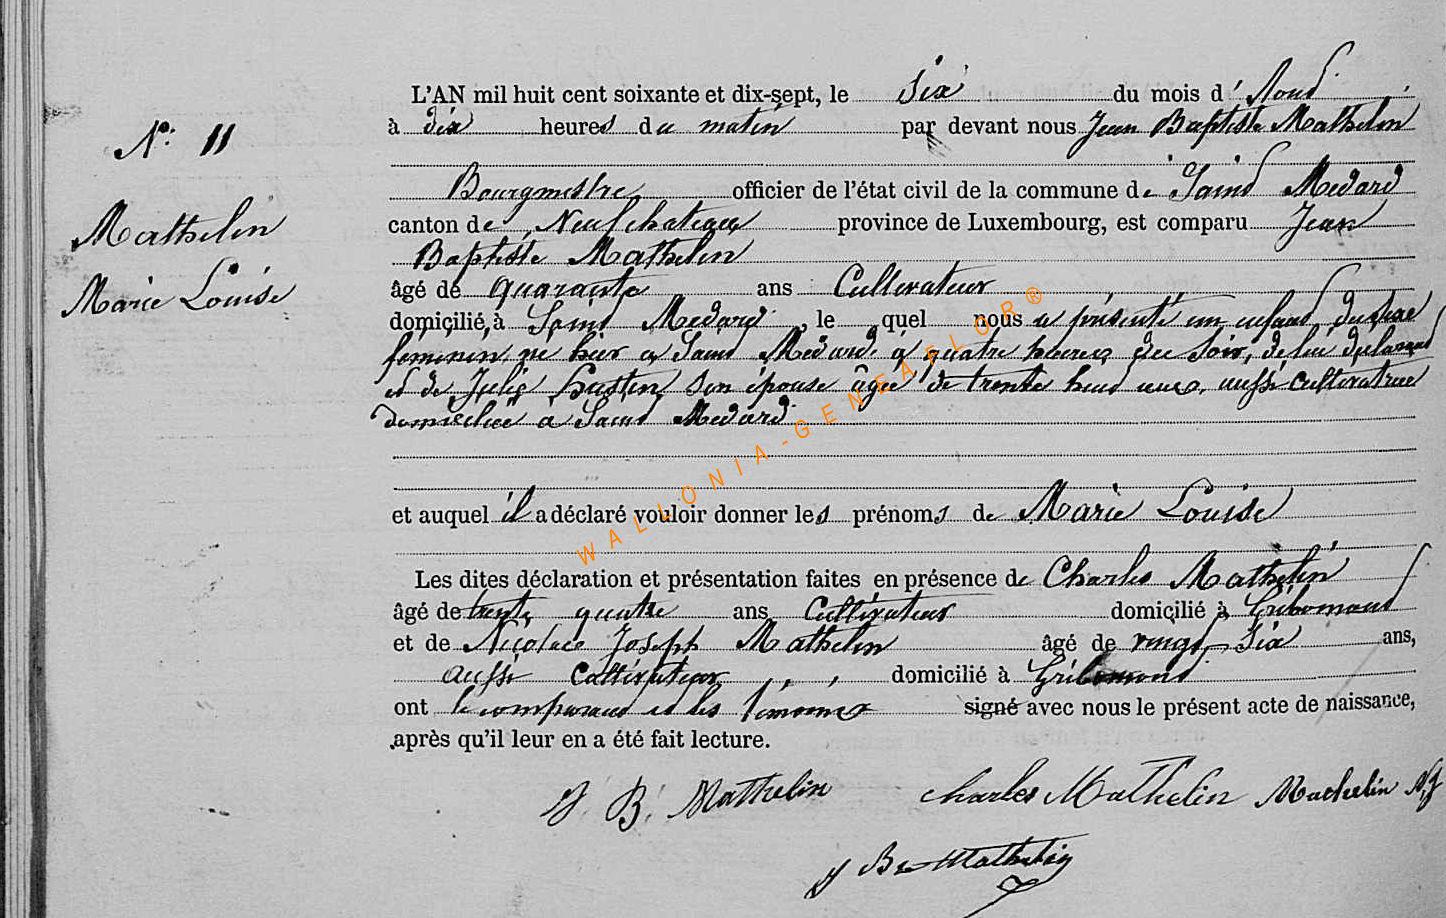 L'AN mil huit cent soixante et dix-sept, le six du mois d' Aout
à dix heures du matin par devant nous Jean Baptiste Mathelin
Nº: 11
Bourgmestre officier de l'état civil de la commune de Saint Medard
canton de Neufchateau province de Luxembourg, est comparu Jean
Mathelin
Baptiste Mathelin
âgé de quarante ans Cultivateur
Marie Louise
domicilié, à Saint Medard, le quel nous a présenté un enfant du sexe
feminin, né hier a Saint Médard, à quatre heures du soir, de lui déclarant
et de Julie Hustin son épouse âgée de trente huit ans, aussi cultivatrice
domiciliée a Saint Medard
et auquel il a déclaré vouloir donner les prénoms de Marie Louise
Les dites déclaration et présentation faites en présence de Charles Mathelin
âgé de trente quatre ans Cultivateur domicilié à Gribomont
et de Nicolas Joseph Mathelin âgé de vingt six ans,
aussi Cultivateur domicilié à Gribomont
ont le comparant et les témoins signé avec nous le présent acte de naissance,
après qu'il leur en a été fait lecture.
J. B. Mathelin Charles Mathelin Mathelin N, J
J Bte Mathelin
WALLONIA-GENEAFLOR®